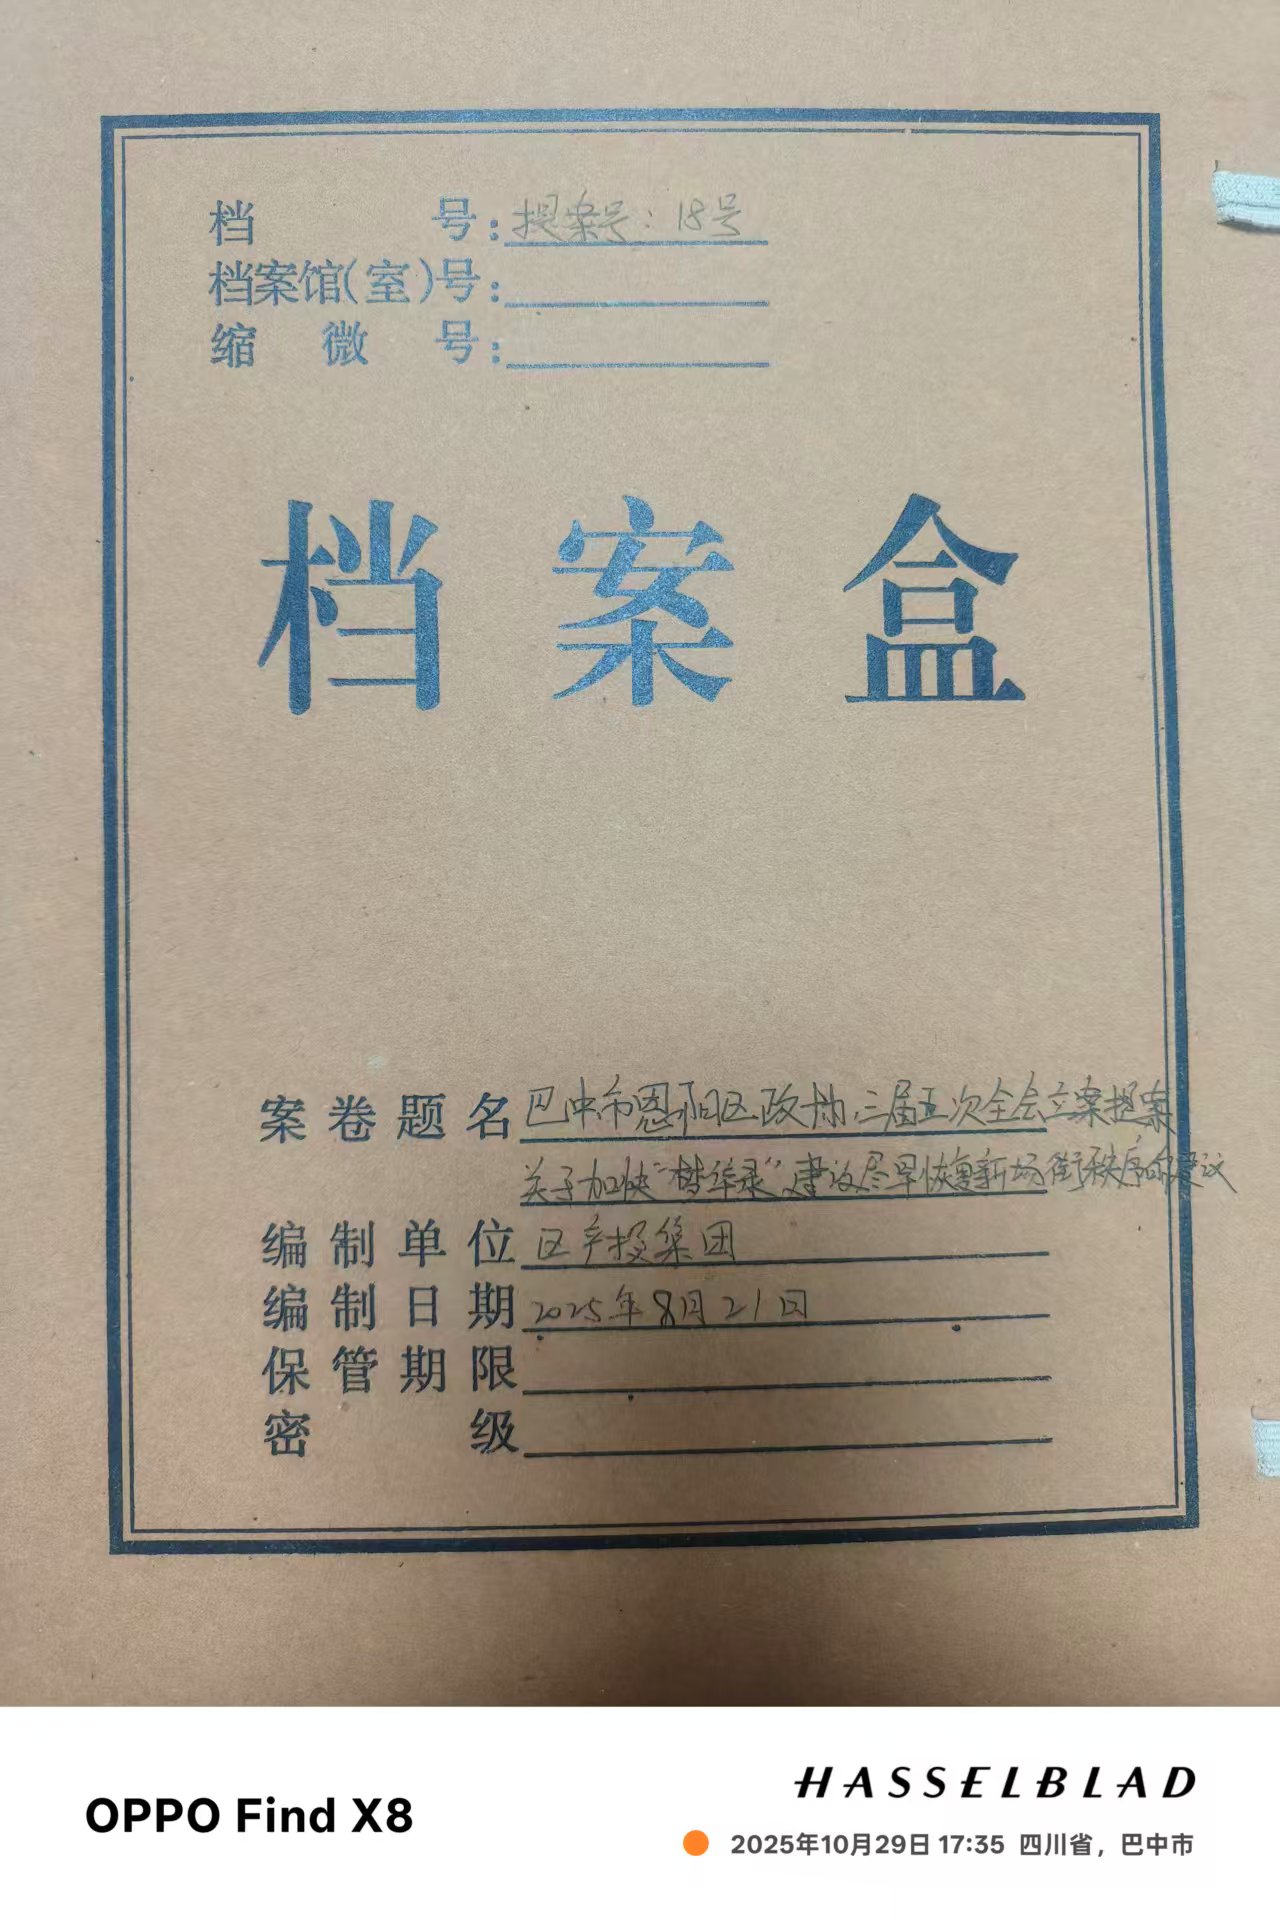 档 号：提案号：18号
档案馆(室)号：
缩 微 号：
档案盒
案卷题名 巴中市恩阳区政协三届五次全会立案提案
关于加快“梦华录”建设尽早恢复新场街秩序的建议
编制单位 区产投集团
编制日期 2025年8月21日
保管期限
密 级
HASSELBLAD
OPPO Find X8
2025年10月29日 17:35 四川省，巴中市